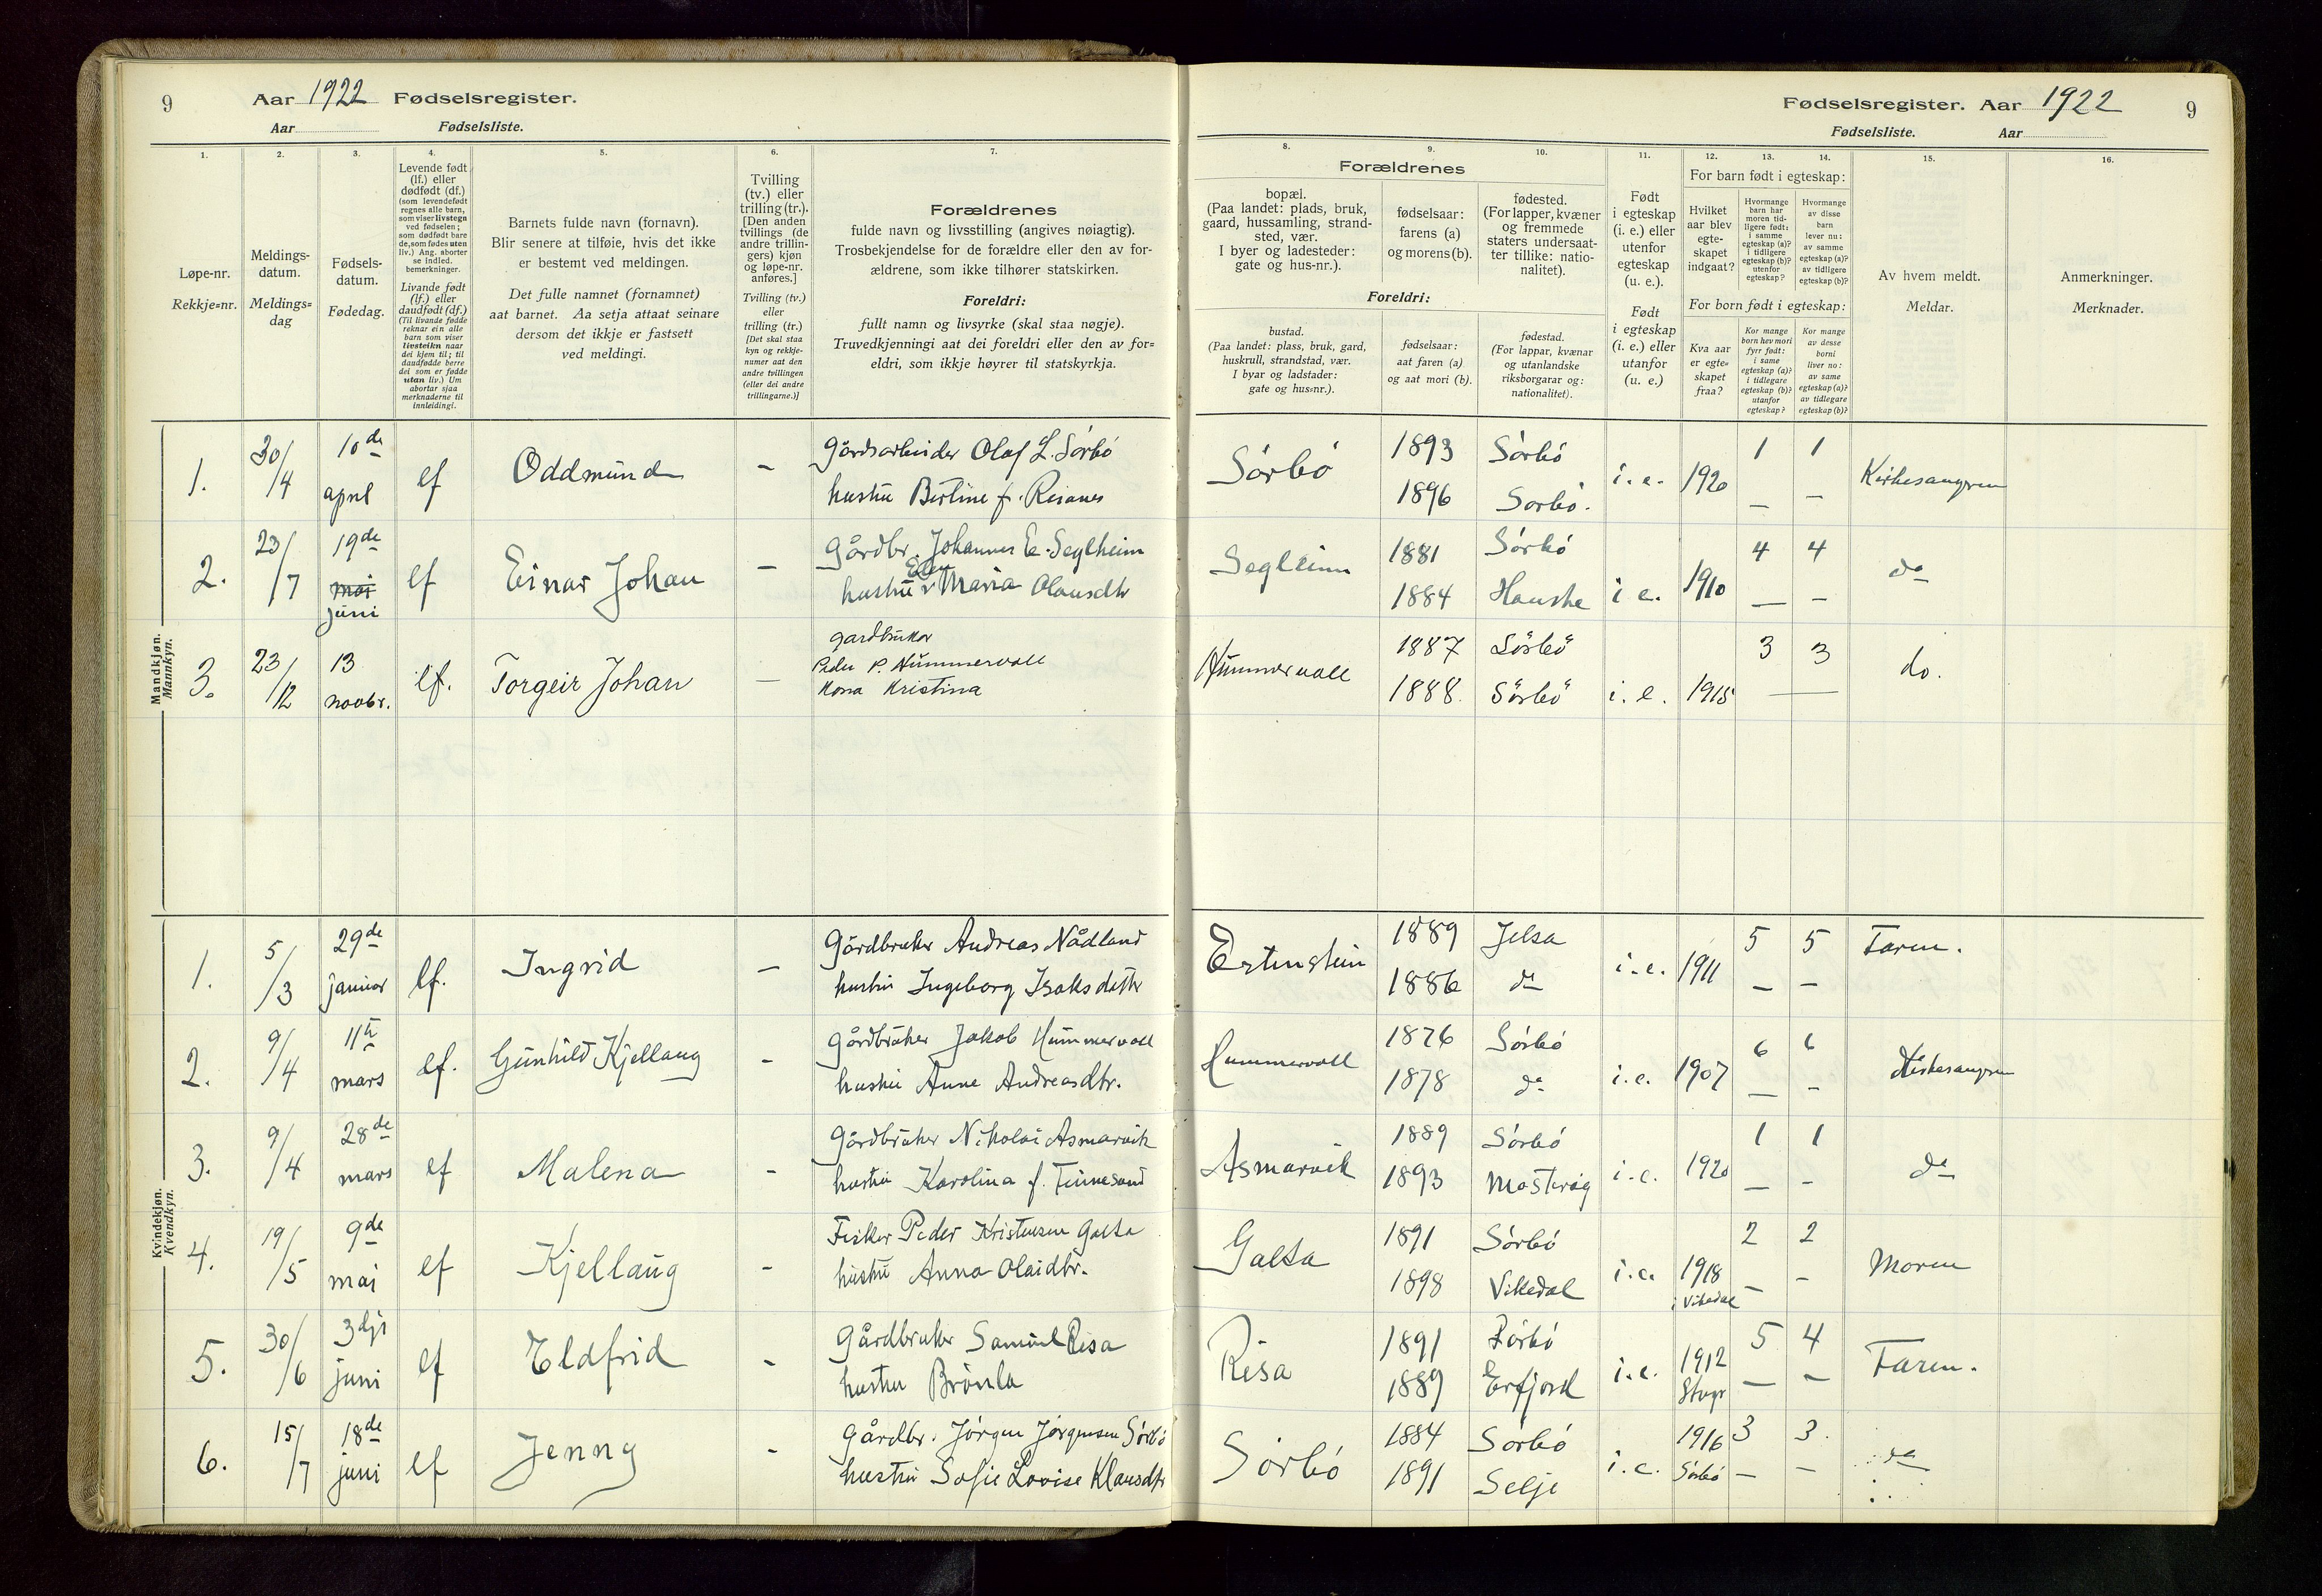 9 Aar 1922 Fødselsregister.
Aar Fødselsliste.
Fødselsregister. Aar 1922 9
Fødselsliste. Aar
1.
Løpe-nr.
Rekkje=nr.
2.
Meldings-
datum.
Meldings=
dag
3.
Fødsels-
datum.
Fødedag.
4.
Levende født
(lf.) eller
dødfødt (df.)
(som levendefødt
regnes alle barn,
som viser livstegn
ved fødselen;
som dødfødt bare
de, som fødes uten
liv.) Ang. aborter
se indled.
bemerkninger.
Livande født
(lf.) eller
daudfødt (df.)
(Til livande fødde
reknar ein alle
barn som viser
livsteikn naar
dei kjem til; til
daudfødde berre
dei som er fødde
utan liv.) Um
abortar sjaa
merknaderne til
innleidingi.
5.
Barnets fulde navn (fornavn).
Blir senere at tilføie, hvis det ikke
er bestemt ved meldingen.
Det fulle namnet (fornamnet)
aat barnet. Aa setja attaat seinare
dersom det ikkje er fastsett
ved meldingi.
6.
Tvilling
(tv.) eller
trilling (tr.).
[Den anden
tvillings (de
andre trillin-
gers) kjøn
og løpe-nr.
anføres.]
Tvilling (tv.)
eller
trilling (tr.)
[Det skal staa
kyn og rekkje-
numer aat den
andre tvillingen
(eller dei andre
trillingarne.)]
7.
Forældrenes
fulde navn og livsstilling (angives nøiagtig).
Trosbekjendelse for de forældre eller den av for-
ældrene, som ikke tilhører statskirken.
Foreldri:
fullt namn og livsyrke (skal staa nøgje).
Truvedkjenningi aat dei foreldri eller den av for=
eldri, som ikkje høyrer til statskyrkja.
Forældrenes
8.
bopæl.
(Paa landet: plads, bruk,
gaard, hussamling, strand-
sted, vær.
I byer og ladesteder:
gate og hus-nr.).
Foreldri:
bustad.
(Paa landet: plass, bruk, gard,
huskrull, strandstad, vær.
I byar og ladstader:
gate og hus=nr.).
9.
fødselsaar:
farens (a)
og morens (b).
fødselsaar:
aat faren (a)
og aat mori (b).
10.
fødested.
(For lapper, kvæner
og fremmede
staters undersaat-
ter tillike: natio-
nalitet).
fødestad.
(For lappar, kvænar
og utanlandske
riksborgarar og:
nationalitet).
11.
Født
i egteskap
(i. e.) eller
utenfor
egteskap
(u. e.).
Født
i egteskap
(i. e.) eller
utanfor
(u. e.)
For barn født i egteskap:
12.
Hvilket
aar blev
egte-
skapet
indgaat?
For born født i egteskap:
Kva aar
er egte-
skapet
fraa?
13.
Hvormange
barn har
moren tid-
ligere født:
i samme
egteskap (a)?
i tidligere
egteskap (b)?
utenfor
egteskap?
Kor mange
born hev mori
fyrr født:
i same
egteskap (a)?
i tidlegare
egteskap (b)?
utanfor
egteskap?
14.
Hvormange
av disse
barn
lever nu:
av samme
egteskap (a)?
av tidligere
egteskap (b)?
Kor mange
av desse
borni
liver no:
av same
egteskap (a)?
av tidlegare
egteskap (b)?
15.
Av hvem meldt.
Meldar.
16.
Anmerkninger.
Merknader.
Mandkjøn.
Mannkyn.
1. 30/4 10de april lf Oddmund –
Gårdsarbeider Olaf L. Sørbø
hustru Bertine f. Reianes
Sørbø 1893 Sørbø i. e. 1920 1 1 Kirkesangeren
1896 Sørbø. – –
2. 23/7 19de mai juni lf Einar Johan –
Gårdbr. Johannes E. Seglheim
hustru Elen Maria Olausdtr
Seglheim 1881 Sørbø i e. 1910 4 4 do
1884 Hauske – –
3. 23/12 13 novbr. lf. Torgeir Johan –
gardbruker
Peder P. Hummervoll
kona Kristina
Hummervoll 1887 Sörbö i. e. 1915 3 3 do.
1888. Sörbö –
Kvindekjøn.
Kvendkyn.
1. 5/3 29de januar lf. Ingrid –
Gårdbruker Andreas Nådland
hustru Ingeborg Isaksdatter
Østenstein 1889 Jelsa i. e. 1911 5 5 Faren.
1886 do – –
2. 9/4 11te mars lf. Gunhild Kjellaug –
Gårdbruker Jakob Hummervoll
hustru Anne Andreasdtr.
Hummervoll 1876 Sørbø i. e. 1907 6 6 Kirkesangeren
1878 do – –
3. 9/4 28de mars lf Malena –
Gårdbruker Nikolai Asmarvik
hustru Karolina f. Finnesand
Asmarvik 1889 Sørbø i. e. 1920 1 1 do
1893 Mosterøy – –
4. 19/5 9de mai lf Kjellaug –
Fisker Peder Kristensen Galta
hustru Anna Olaidtr.
Galta 1891 Sørbø i. e. 1918 2 2 Moren
1898 Vikedal i Vikedal – –
5. 30/6 3dje juni lf Eldfrid –
Gårdbruker Samuel Risa
hustru Brønla
Risa 1891 Sørbø i. e. 1912 5 4 Faren.
1889 Erfjord Stvgr – –
6. 15/7 18de juni lf Jenny –
Gårdbr. Jørgen Jørgensen Sørbø
hustru Sofie Lovise Klausdtr
Sørbø 1884 Sørbø i. e. 1916 3 3. do
1891 Selje Sørbø – –